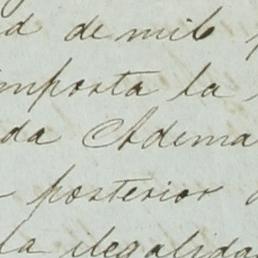 d de mil
imposta la
da Adema
posterior
la ilegalida